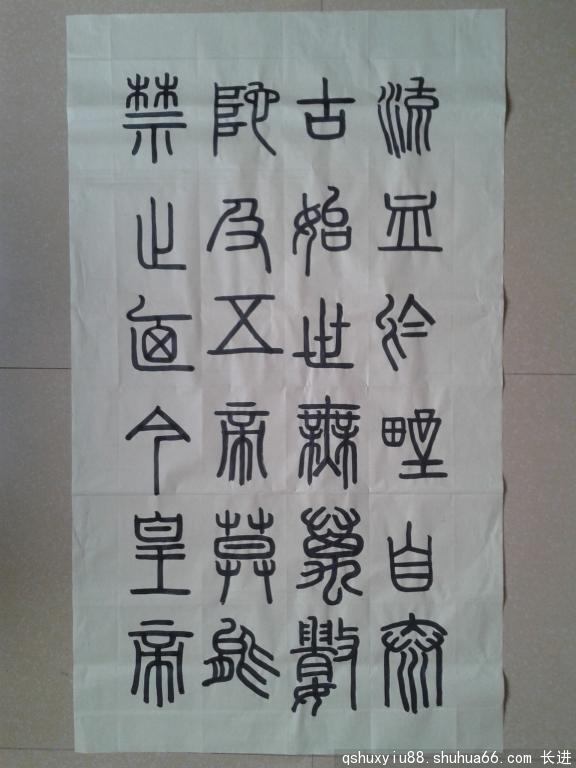 流血於野自泰
古始世無萬數
陀及五帝莫能
禁止迺今皇帝
qshuxyiu88.shuhua66.com 长进